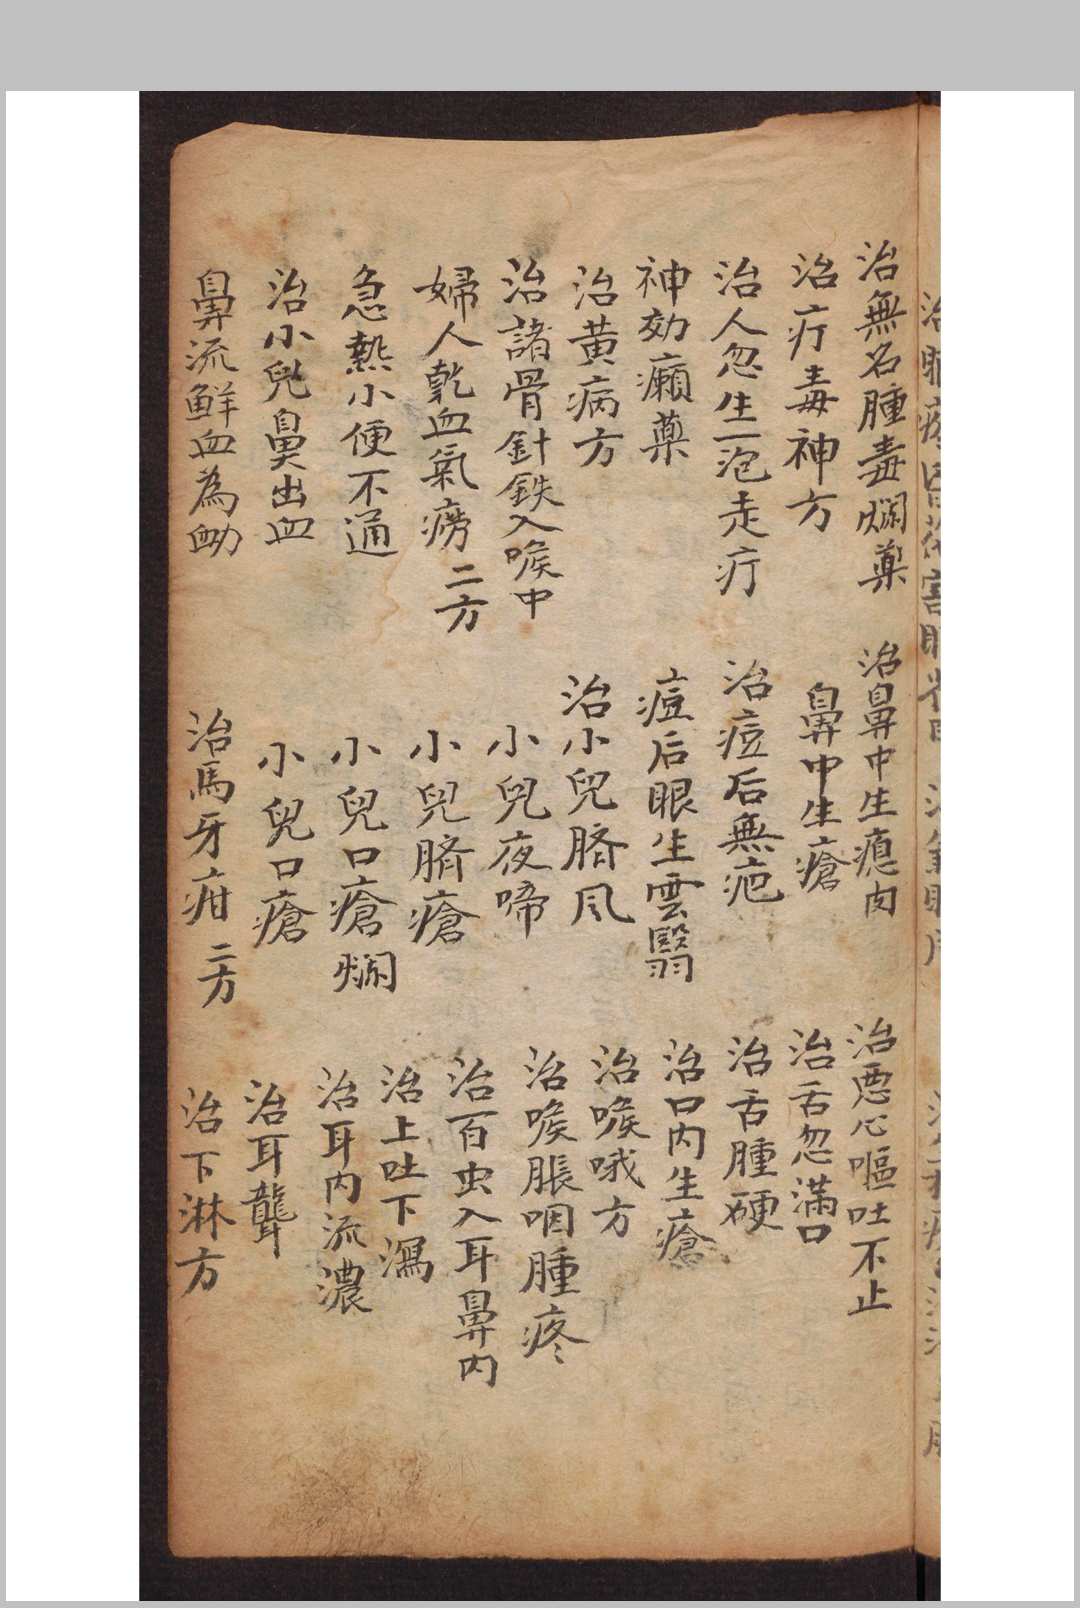 治無名腫毒爛藥
治疔毒神方
治人忽生一泡走疔
神効癩藥
治黄病方
治諸骨針鉄入喉中
婦人乾血氣癆 二方
急熱小便不通
治小兒鼻出血
鼻流鮮血為衂
治鼻中生瘜肉
鼻中生瘡
治痘后無疤
痘后眼生雲翳
治小兒臍风
小兒夜啼
小兒臍瘡
小兒口瘡爛
小兒口瘡
治馬牙疳 二方
治惡心嘔吐不止
治舌忽滿口
治舌腫硬
治口内生瘡
治喉哦方
治喉脹咽腫疼
治百虫入耳鼻内
治上吐下瀉
治耳内流濃
治耳聾
治下淋方